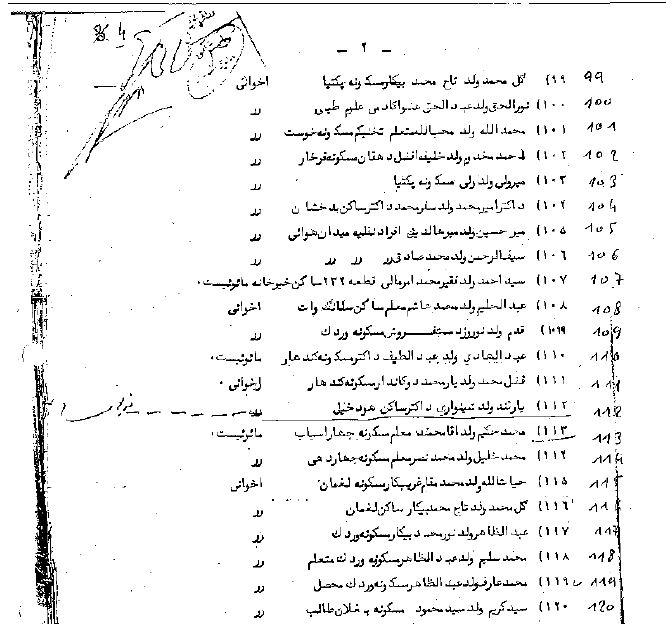 - ۲ -
99 (۹۹ گل محمد ولد تاج محمد بیکار سکونه پکتیا اخوانی
100 (۱۰۰ نورالحق ولد عبدالحق عضو اکادمی علوم طبی //
101 (۱۰۱ محمدالله ولد محب الله متعلم تخنیکم سکونه خوست //
102 (۱۰۲ احمد مخدوم ولد خلیفه افضل دهقان سکونه فرخار //
103 (۱۰۳ میرولی ولد ولی سکونه پکتیا //
104 (۱۰۴ داکتر امیر محمد ولد سفر محمد داکتر ساکن بدخشان //
105 (۱۰۵ میر حسین ولد میر افراد نظیه میدان هوائی //
106 (۱۰۶ سیف الرحمن ولد محمد صادق // // // //
107 (۱۰۷ سید احمد ولد فقیر محمد امر مالی قطعه ۲۳۲ ساکن خیرخانه مائوئیست.
108 (۱۰۸ عبدالحلیم ولد محمد هاشم معلم ساکن سالنگ وات اخوانی
109 (۱۰۹ قدم ولد نوروز سکونه وردک //
110 (۱۱۰ عبدالهادی ولد عبدالطیف داکتر سکونه کندهار مائوئیست.
111 (۱۱۱ فضل محمد ولد یار محمد دوکاندار سکونه کندهار اخوانی.
112 (۱۱۲ ولد داکتر ساکن هود خیل //
113 (۱۱۳ محمد حکیم ولد اقا محمد معلم سکونه چهار اسیاب مائوئیست.
114 (۱۱۴ محمد خلیل ولد محمد نصر معلم سکونه چهاردهی //
115 (۱۱۵ حیات الله ولد محمد مقام غریبکار سکونه لغمان اخوانی
116 (۱۱۶ گل محمد ولد تاج محمد بیکار ساکن لغمان //
117 (۱۱۷ عبدالظاهر ولد نور محمد بیکار سکونه وردک //
118 (۱۱۸ محمد سلیم ولد عبدالظاهر سکونه وردک متعلم //
119 (۱۱۹ محمد عارف ولد عبدالظاهر سکونه وردک محصل //
120 (۱۲۰ سید کریم ولد سید محمود سکونه بغلان طالب //